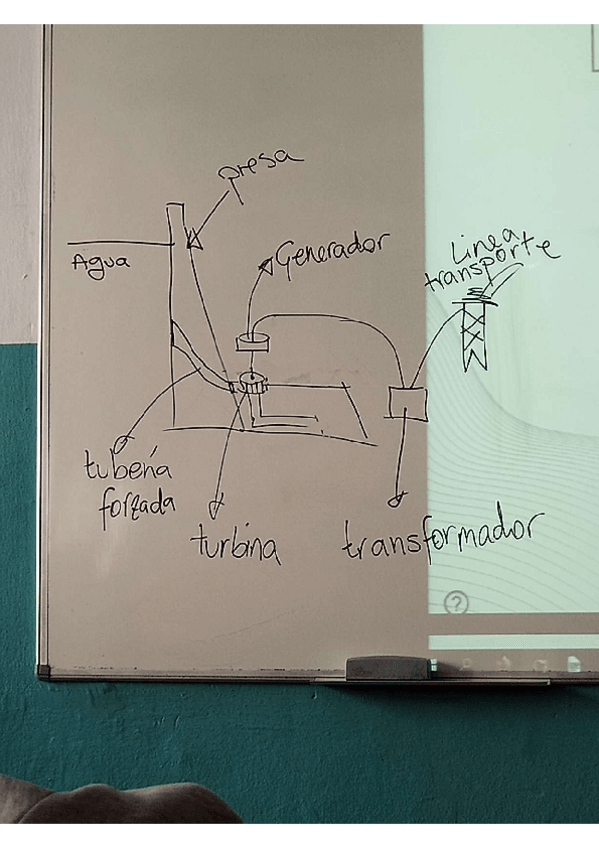 presa
Agua
Generador
Linea
transporte
tubería
forzada
turbina
transformador
?